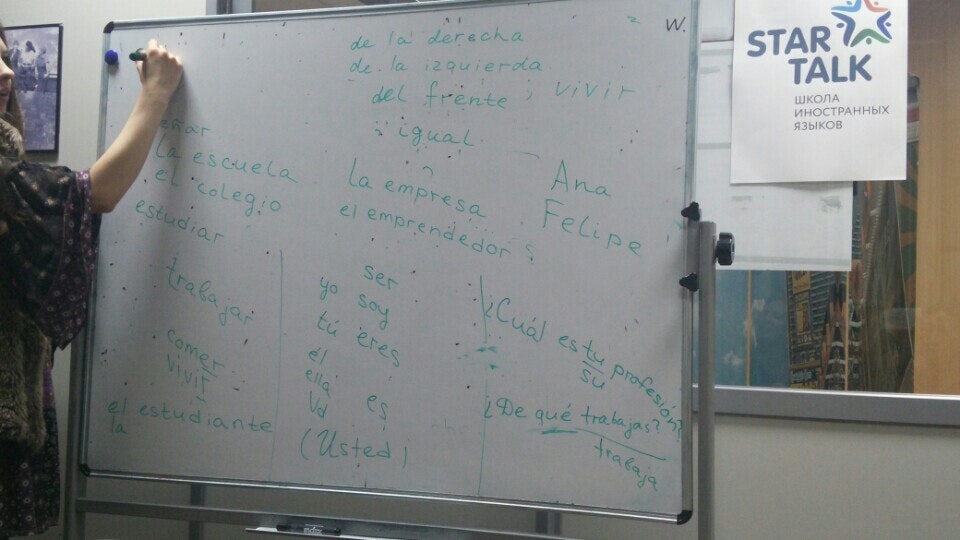 de la derecha
de la izquierda
del frente
vivir
igual
eñar
la escuela
el colegio
estudiar
la empresa
el emprendedor
Ana
Felipe
trabajar
comer
vivir
el estudiante
la
ser
yo soy
tú eres
él
ella es
Vd
(Usted)
¿Cuál es tu profesión?
su
¿De qué trabajas?
trabaja
W.
STAR
TALK
ШКОЛА
ИНОСТРАННЫХ
ЯЗЫКОВ